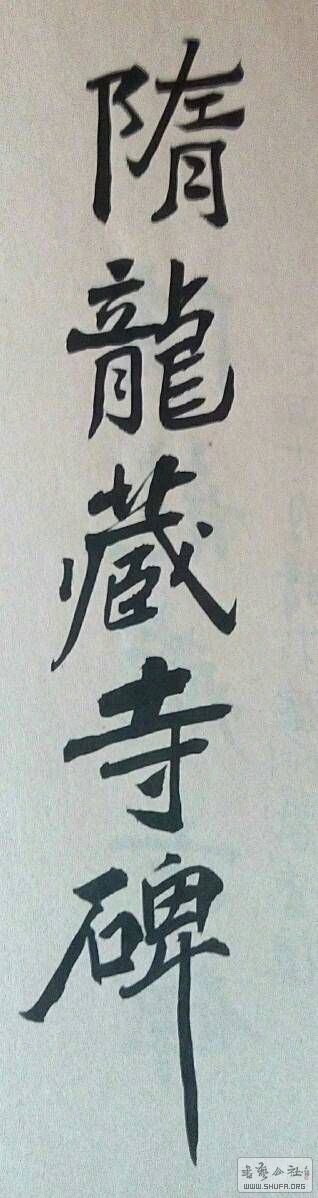 隋龍藏寺碑
书艺公社
WWW.SHUFA.ORG